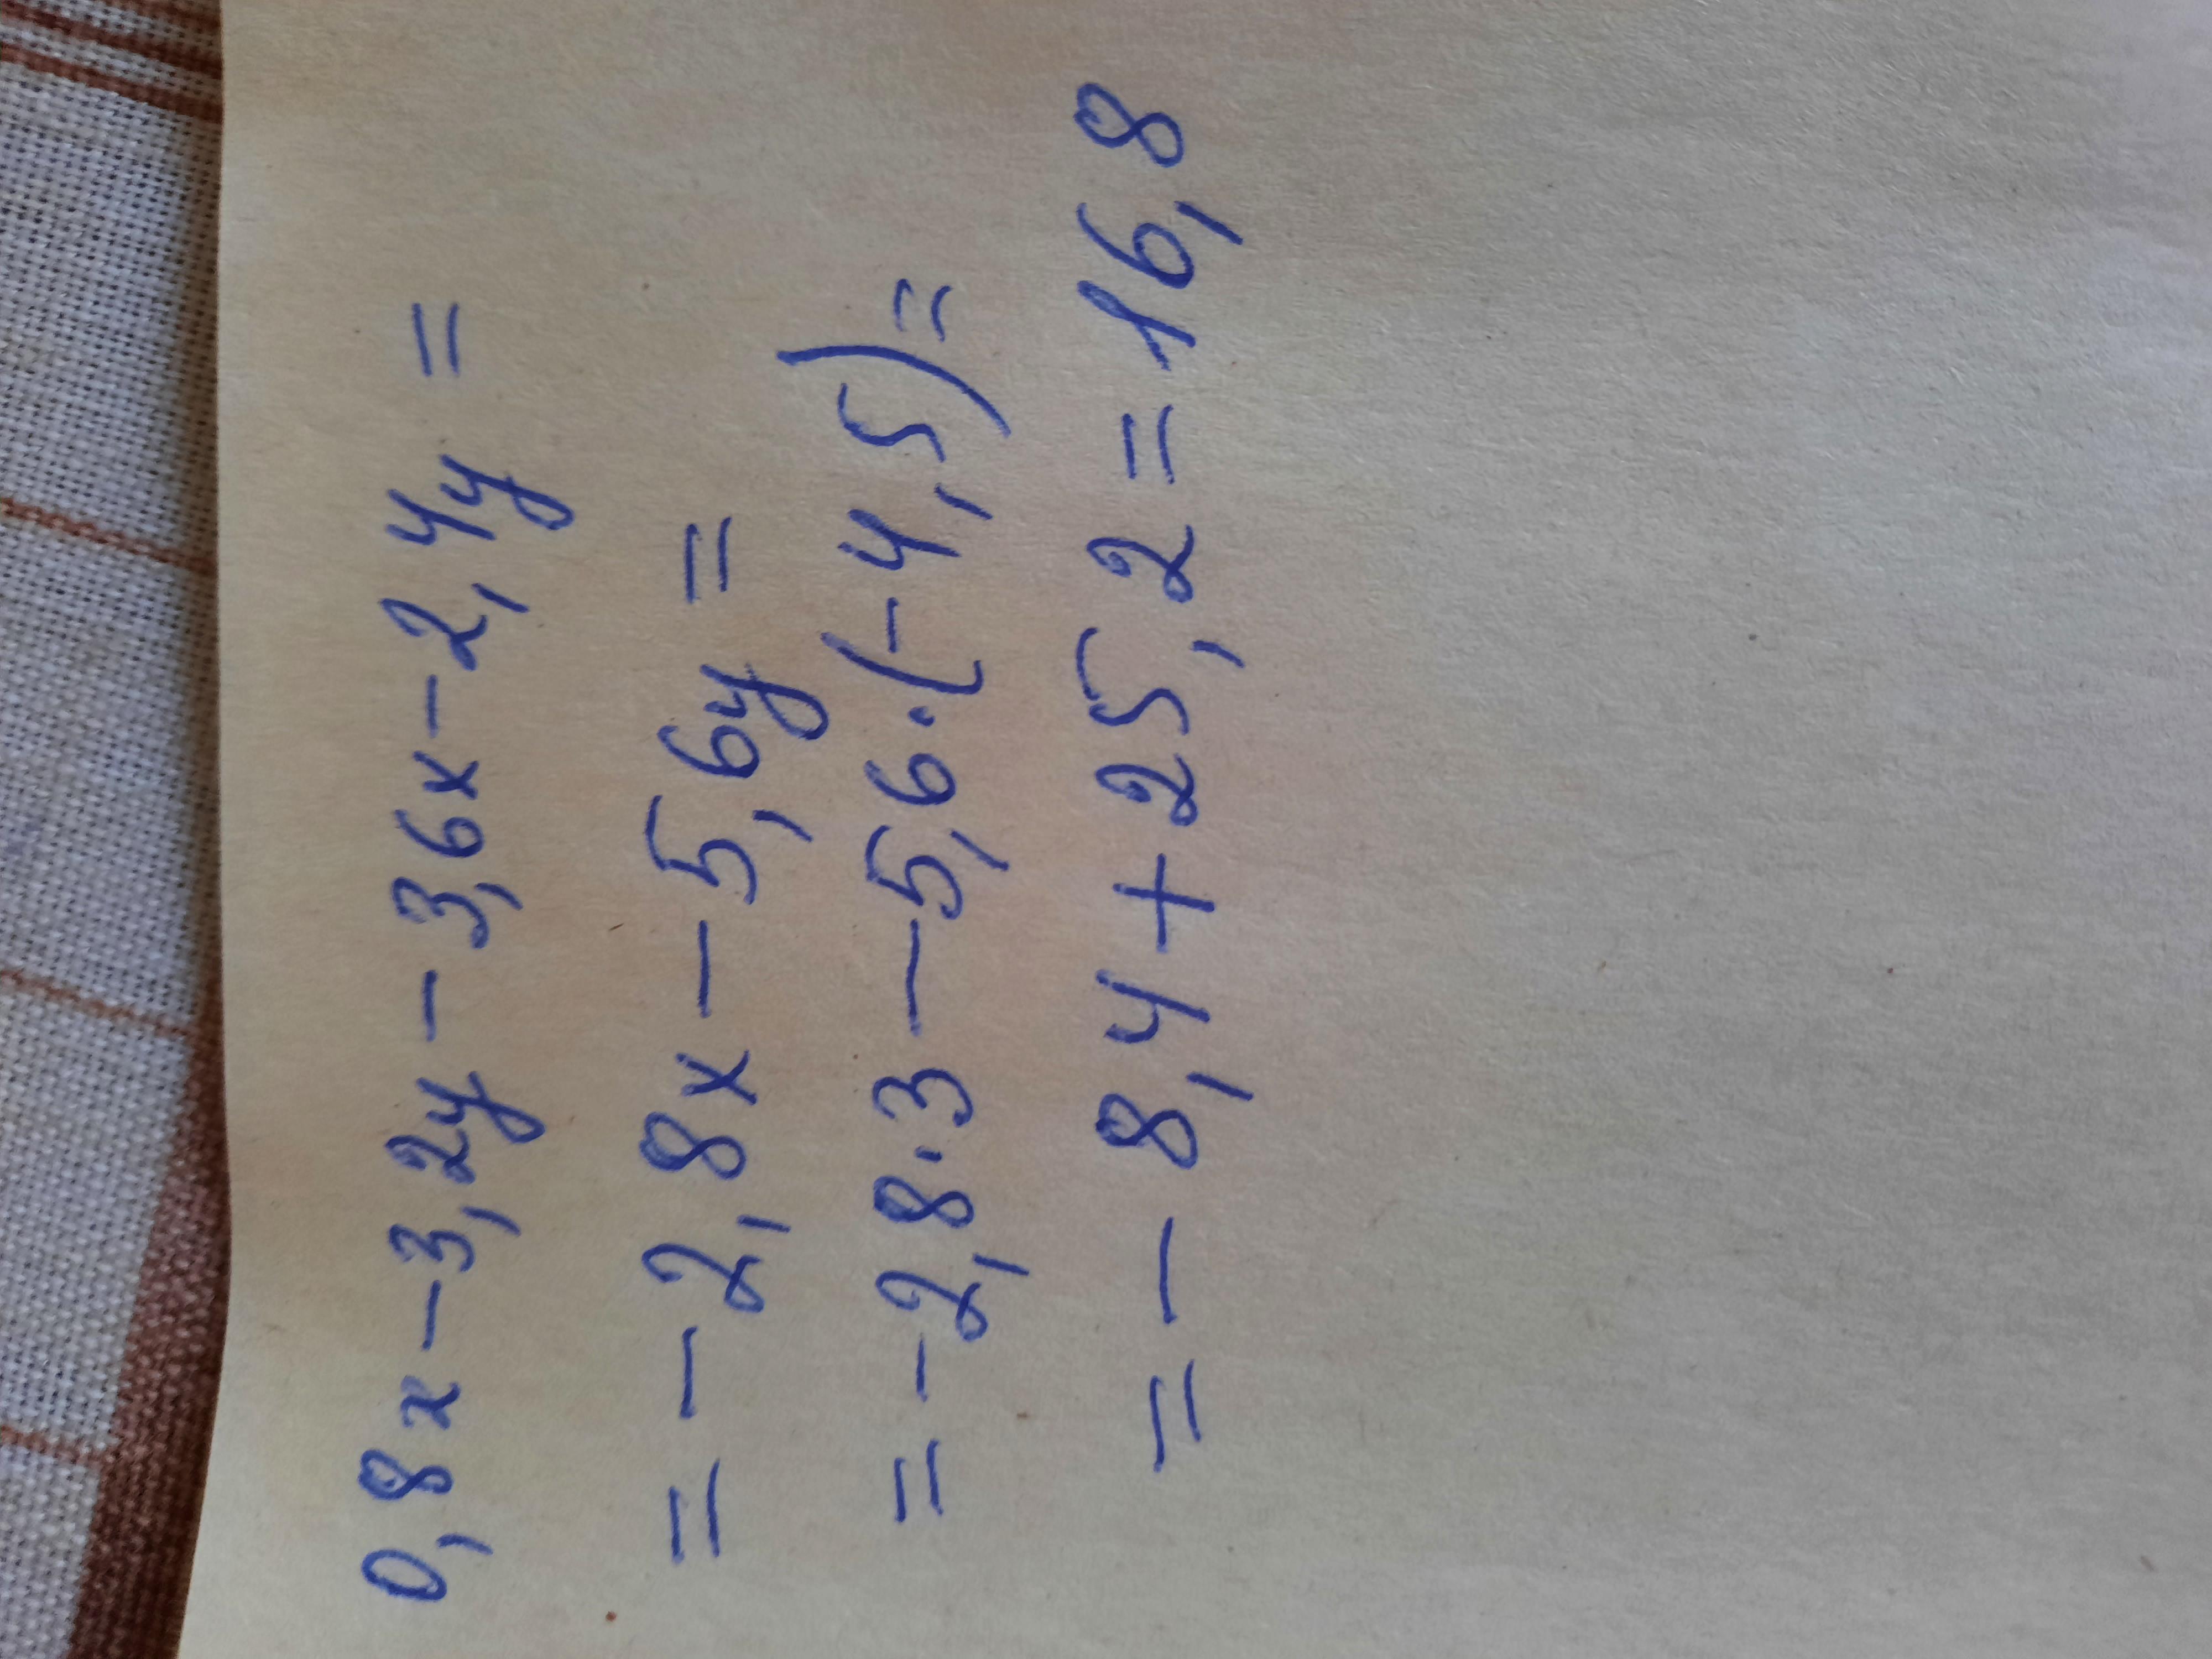 0,8x-3,2y-3,6x-2,4y=
=-2,8x-5,6y=
=-2,8·3-5,6·(-4,5)=
=-8,4+25,2=16,8